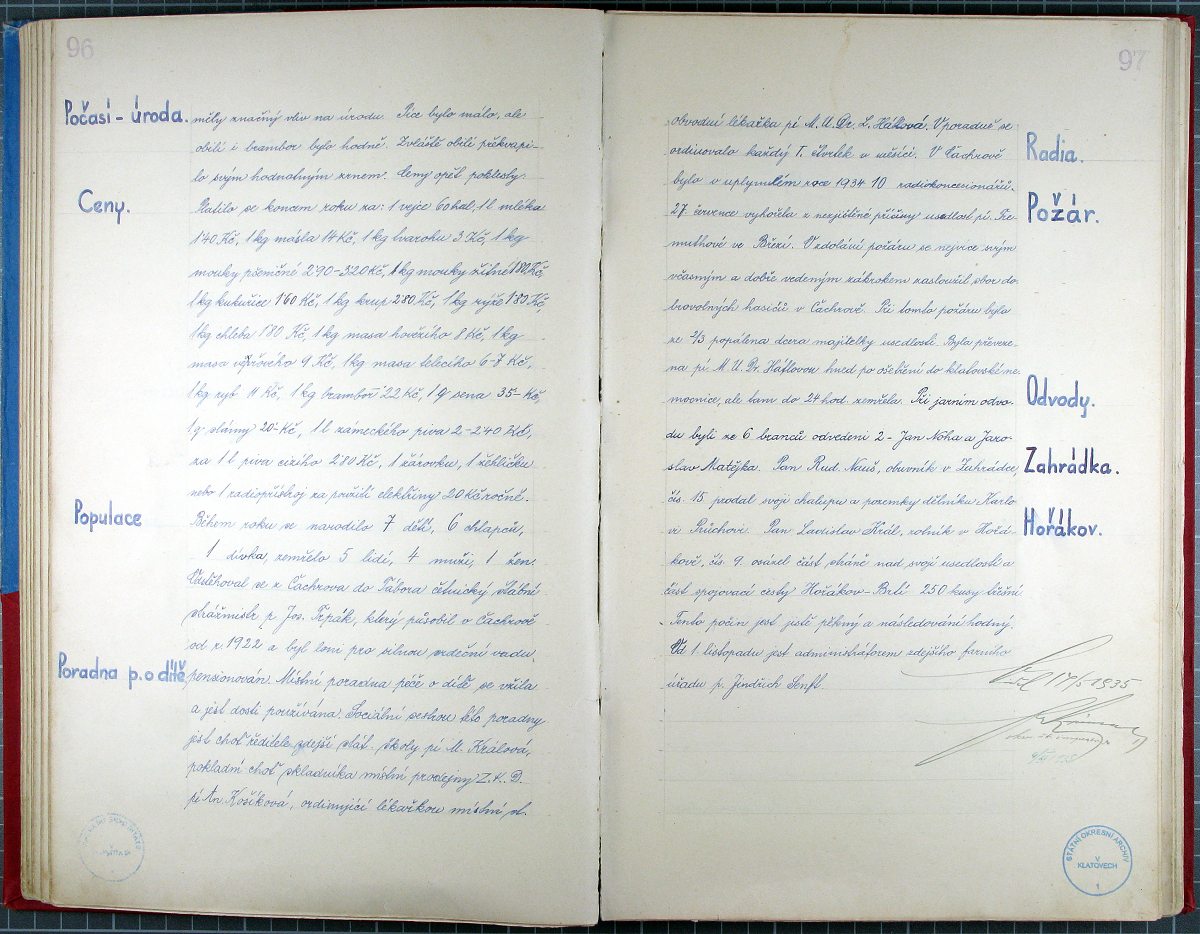 96
Počasí - úroda.
měly značný vliv na úrodu. Píce bylo málo, ale
obilí i brambor bylo hodně. Zvláště obilí překvapi-
lo svým hodnotným zrnem. Ceny opět poklesly.
Ceny.
Platilo se koncem roku za: 1 vejce 60 hal, 1 l mléka
1'40 Kč, 1 kg másla 14 Kč, 1 kg tvarohu 3 Kč, 1 kg
mouky pšeničné 2'90-3'20 Kč, 1 kg mouky žitné 1'80 Kč,
1 kg kukuřice 1'60 Kč, 1 kg krup 2'80 Kč, 1 kg rýže 1'80 Kč,
1 kg chleba 1'80 Kč, 1 kg masa hovězího 8 Kč, 1 kg
masa vepřového 9 Kč, 1 kg masa telecího 6-7 Kč,
1 kg ryb 11 Kč, 1 kg brambor 22 Kč, 1 q sena 35- Kč,
1 q slámy 20- Kč, 1 l zámeckého piva 2-2'40 Kč,
za 1 l piva cizího 2'80 Kč, 1 žárovku, 1 žehličku
nebo 1 radiopřístroj za použití elektřiny 20 Kč ročně.
Populace
Během roku se narodilo 7 dětí, 6 chlapců,
1 dívka, zemřelo 5 lidí, 4 muži, 1 žen.
Odstěhoval se z Čachrova do Tábora četnický štábní
strážmistr p. Jos. Trpák, který působil v Čachrově
od r. 1922 a byl loni pro silnou srdeční vadu
Poradna p. o dítě
pensionován. Místní poradna péče o dítě se vžila
a jest dosti používána. Sociální sestrou této poradny
jest choť ředitele zdejší stát. školy pí M. Králová,
pokladní choť skladníka místní prodejny Z. K. D.
pí An. Kosíková, ordinující lékařkou místní st.
97
obvodní lékařka pí M. U. Dr. L. Háflová. V poradně se
Radia.
ordinovalo každý I. čtvrtek v měsíci. V Čachrově
bylo v uplynulém roce 1934 10 radiokoncesionářů.
Požár.
27. července vyhořela z nezjištěné příčiny usedlost pí. Tre-
muthové ve Březí. O zdolání požáru se nejvíce svým
včasným a dobře vedeným zákrokem zasloužil sbor do-
brovolných hasičů v Čachrově. Při tomto požáru byla
ze 2/3 popálena dcera majitelky usedlosti. Byla převeze-
na pí. M. U. Dr. Háflovou hned po ošetření do klatovské ne-
Odvody.
mocnice, ale tam do 24 hod. zemřela. Při jarním odvo-
du byli ze 6 branců odvedeni 2 - Jan Noha a Jaro-
Zahrádka.
slav Matějka. Pan Rud. Nauš, obuvník v Zahrádce,
čís. 15 prodal svoji chalupu a pozemky dělníku Karlo-
Hořákov.
vi Průchovi. Pan Ladislav Král, rolník v Hořá-
kově, čís. 9. osázel část stráně nad svojí usedlostí a
část spojovací cesty Hořákov-Brtí 250 kusy třešní.
Tento počin jest jistě pěkný a následování hodný.
Od 1. listopadu jest administrátorem zdejšího farního
úřadu p. Jindřich Senft.
17/5 1935
STÁTNÍ OKRESNÍ ARCHIV
V
KLATOVECH
1